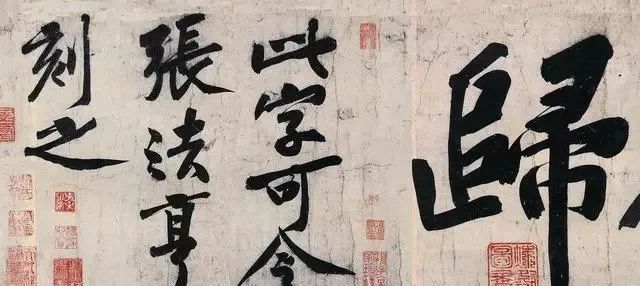 歸
此字可令
張法亨
刻之